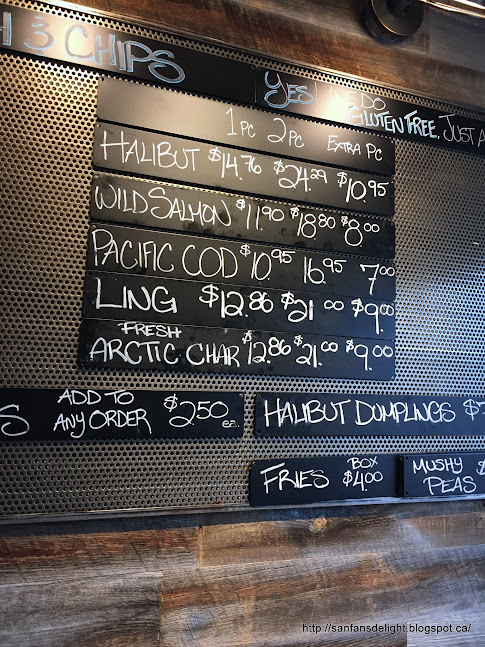 H & CHIPS
YES! DO
GLUTEN FREE, JUST A
1PC 2PC EXTRA PC
HALIBUT $14.76 $24.29 $10.95
WILD SALMON $11.90 $18.80 $8.00
PACIFIC COD $10.95 16.95 7.00
LING $12.86 $21.00 $9.00
FRESH
ARCTIC CHAR $12.86 $21.00 $9.00
S ADD TO
ANY ORDER $2.50 ea.
HALIBUT DUMPLINGS $7
FRIES BOX
$4.00
MUSHY
PEAS $
http://sanfansdelight.blogspot.ca/